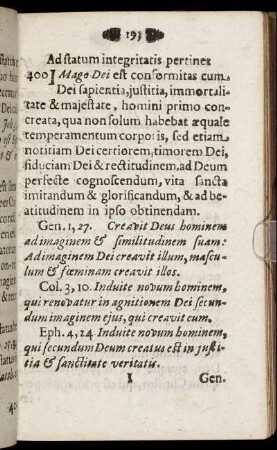 193
Ad statum integritatis pertinet
400 Imago Dei est conformitas cum
Dei sapientia, justitia, immortali-
tate & majestate, homini primo con-
creata, qua non solum habebat æquale
temperamentum corporis, sed etiam
notitiam Dei certiorem, timorem Dei,
fiduciam Dei & rectitudinem, ad Deum
perfecte cognoscendum, vita sancta
imitandum & glorificandum, & ad be-
atitudinem in ipso obtinendam.
Gen. 1, 27. Creavit Deus hominem
ad imaginem & similitudinem suam:
Ad imaginem Dei creavit illum, mascu-
lum & fœminam creavit illos.
Col. 3, 10. Induite novum hominem,
qui renovatur in agnitionem Dei secun-
dum imaginem ejus, qui creavit eum.
Eph. 4, 24 Induite novum hominem,
qui secundum Deum creatus est in justi-
tia & sanctitate veritatis.
I Gen.